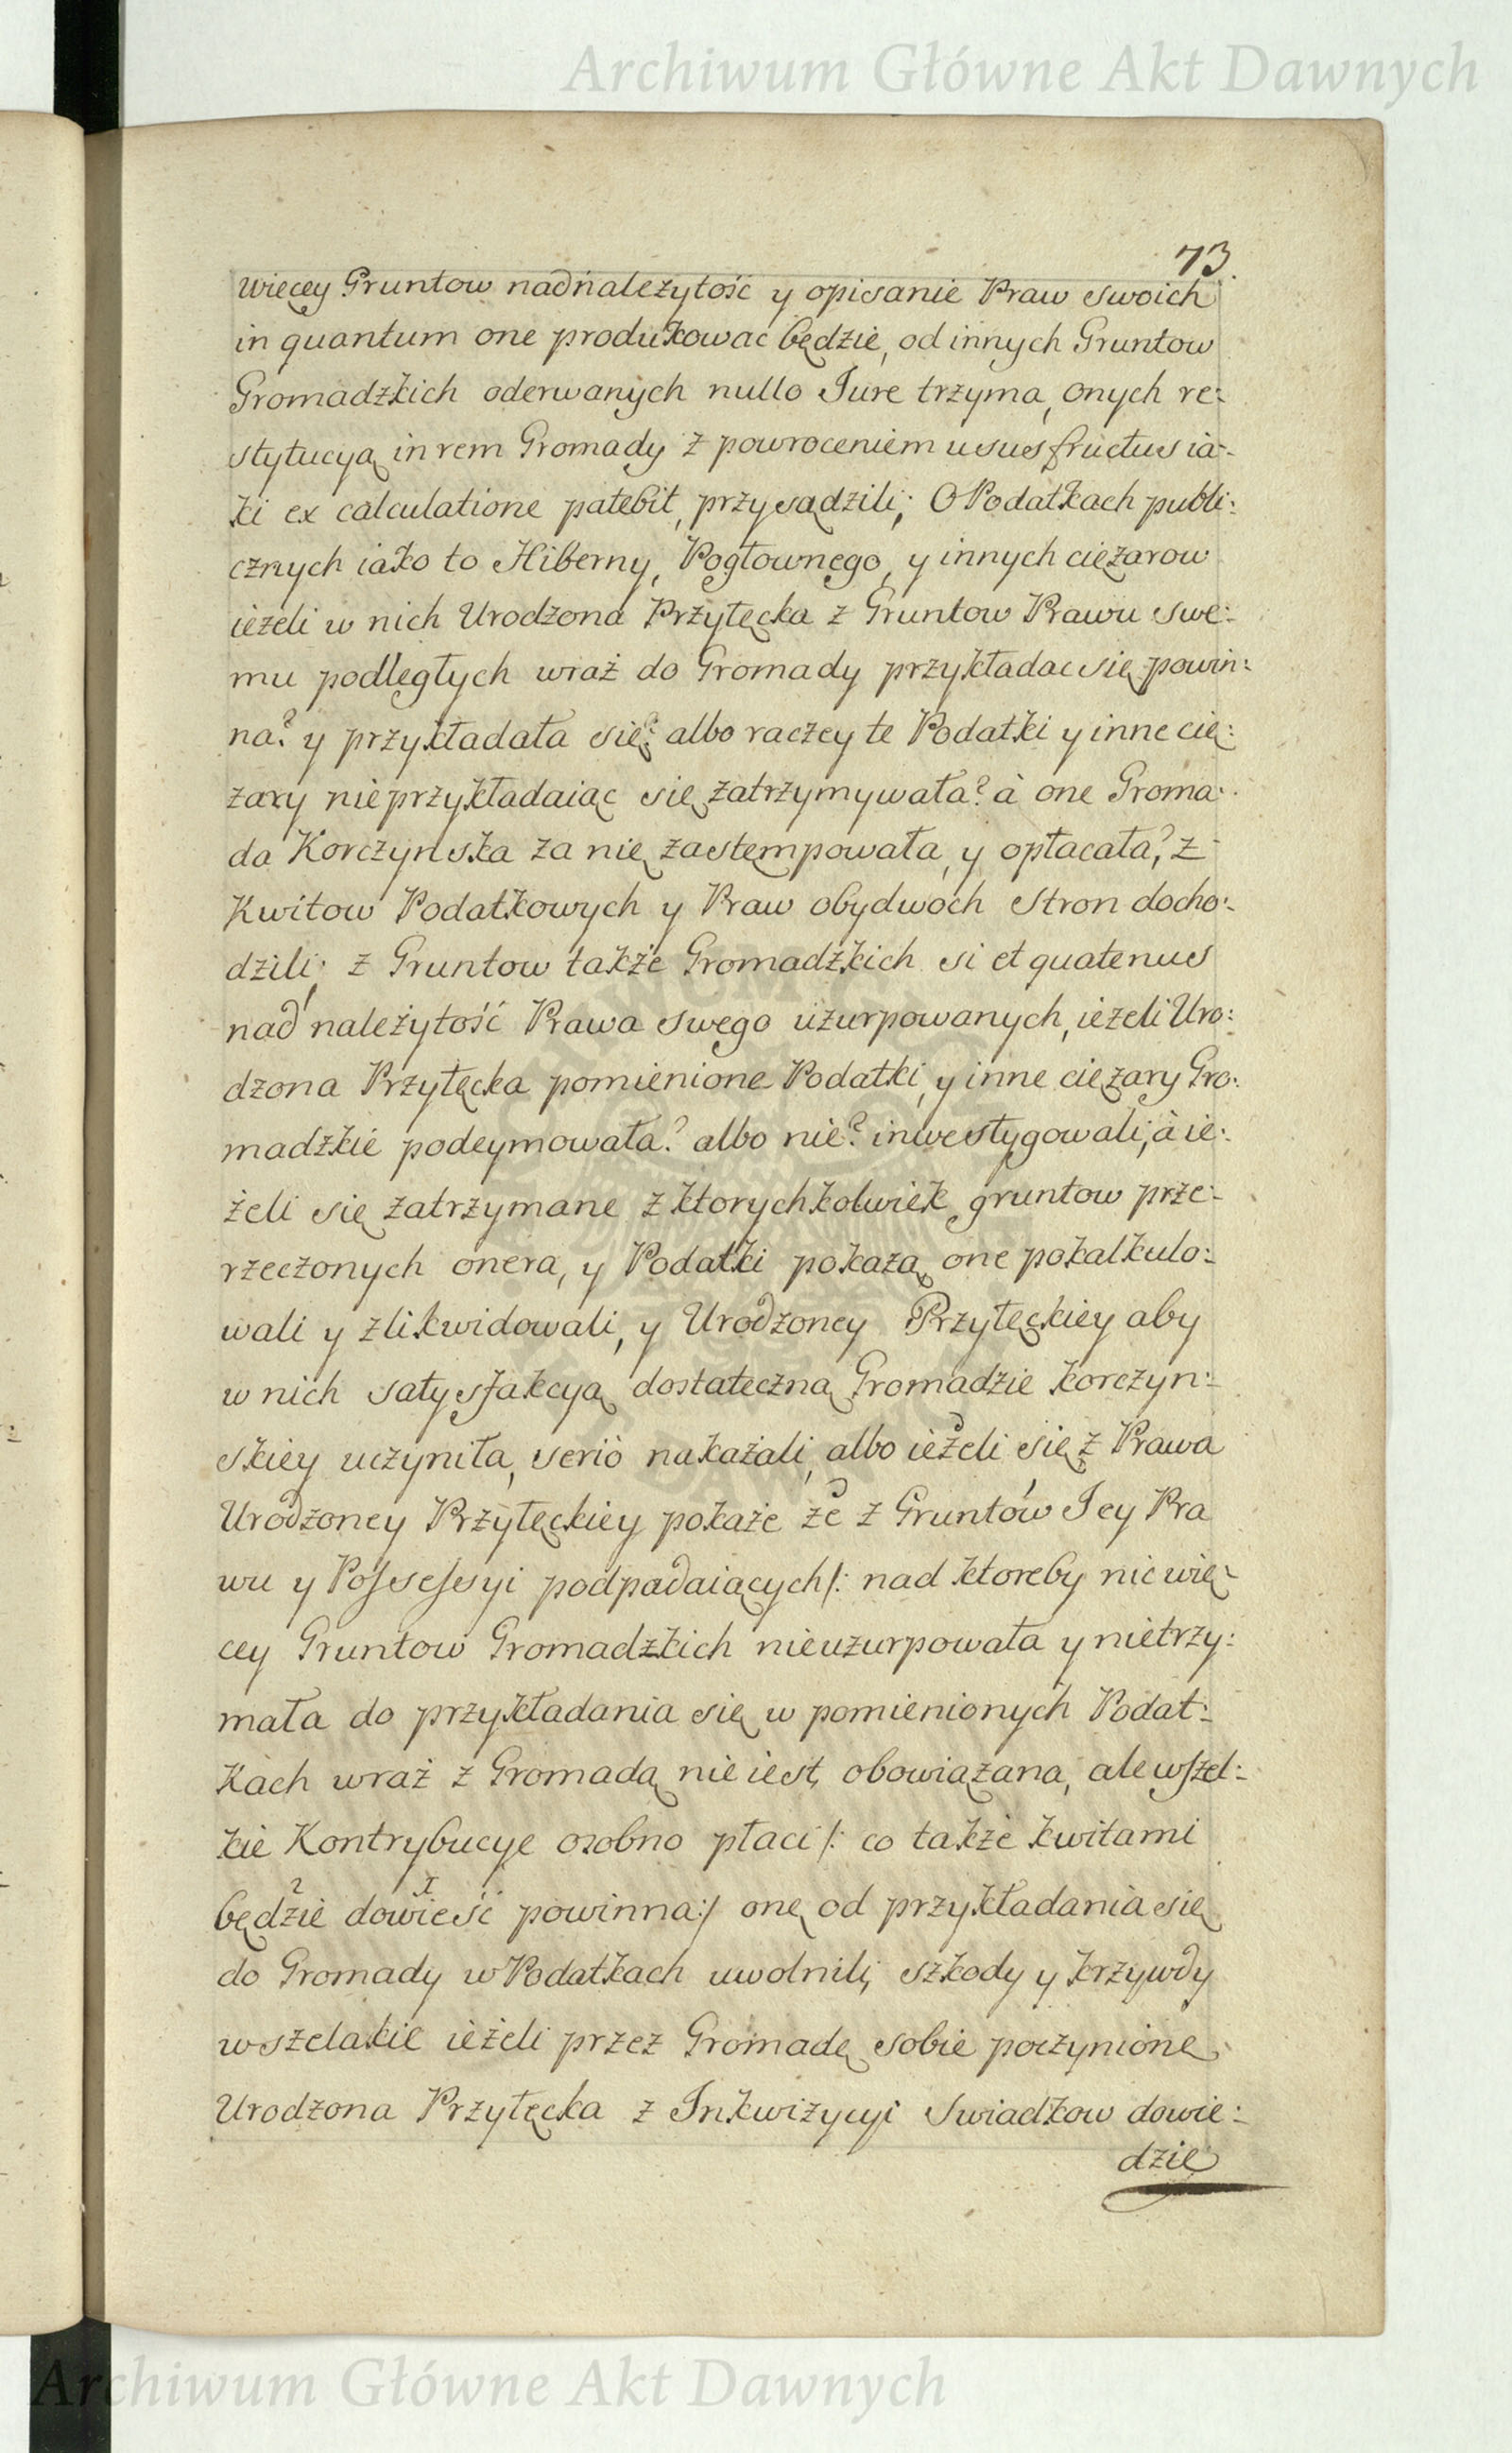 Archiwum Główne Akt Dawnych
73.
więcey Gruntow nadnależytość y opisanie Praw swoich
in quantum one produkować będzie, od innych Gruntow
Gromadzkich oderwanych nullo Jure trzyma, onych re:
stytucyą in rem Gromady z powroceniem ususfructus ia:
ki ex calculatione patebit, przysądzili; O Podatkach publi:
cznych iako to Hiberny, Pogłownego, y innych ciężarow
ieżeli w nich Urodzona Przyłęcka z Gruntow Prawu swe:
mu podległych wraż do Gromady przykładac się powin:
na? y przykładała się? albo raczey te Podatki y inne cię:
żary nieprzykładaiąc się zatrzymywała? à one Groma:
da Korczynska za nię zastempowała, y opłacała? z
Kwitow Podatkowych y Praw obydwoch Stron docho:
dzili; z Gruntow także Gromadzkich si et quatenus
nad należytość Prawa swego uzurpowanych, ieżeli Uro:
dzona Przyłęcka pomienione Podatki, y inne ciężary Gro:
madzkie podeymowała? albo nie? inwestygowali; à ie:
żeli się zatrzymane z ktorychkolwiek gruntow prze:
rzeczonych onera, y Podatki pokażą one pokalkulo:
wali y zlikwidowali, y Urodzoney Przyłęckiey aby
w nich satysfakcyą dostateczną Gromadzie korczyn:
skiey uczyniła, seriò nakażali, albo ieżeli się z Prawa
Urodzoney Przyłęckiey pokaże że z Gruntów Jey Pra
wu y Possessyi podpadaiących /: nad ktoreby nic wię:
cey Gruntow Gromadzkich nieuzurpowała y nietrzy:
mała do przykładania się w pomienionych Podat:
Kach wraż z Gromadą nie iest, obowiązana, ale wszel:
kie Kontrybucye osobno płaci /: co także kwitami
będzie dowieść powinna :/ onę od przykładania się
do Gromady w Podatkach uwolnili; szkody y krzywdy
wszelakie ieżeli przez Gromadę sobie poczynione
Urodzona Przyłęcka z Inkwizycyi Swiadkow dowie:
dzie
Archiwum Główne Akt Dawnych